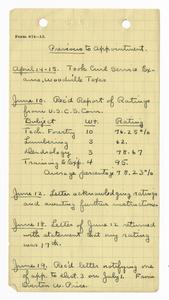 Form 874-15.
Previous to Appointment.
April 14-15. Took Civil Service Ex-
ams, Woodville Texas
June 10. Rec'd Report of Ratings
from U.S.C.S. Com.
Subject Wt. Rating
Tech. Forestry 10 76.25%
Lumbering 3 62.
Dendrology 3 78.67
Training & Exp. 4 95.
Average percentage 78.23%
June 12. Letter acknowledging ratings
and awaiting further instructions.
June 18. Letter of June 12 returned
with statement that my rating
was 17th.
June 19. Rec'd letter notifying one
of app. to Dist. 3 on July 1. From
Overton W. Price.